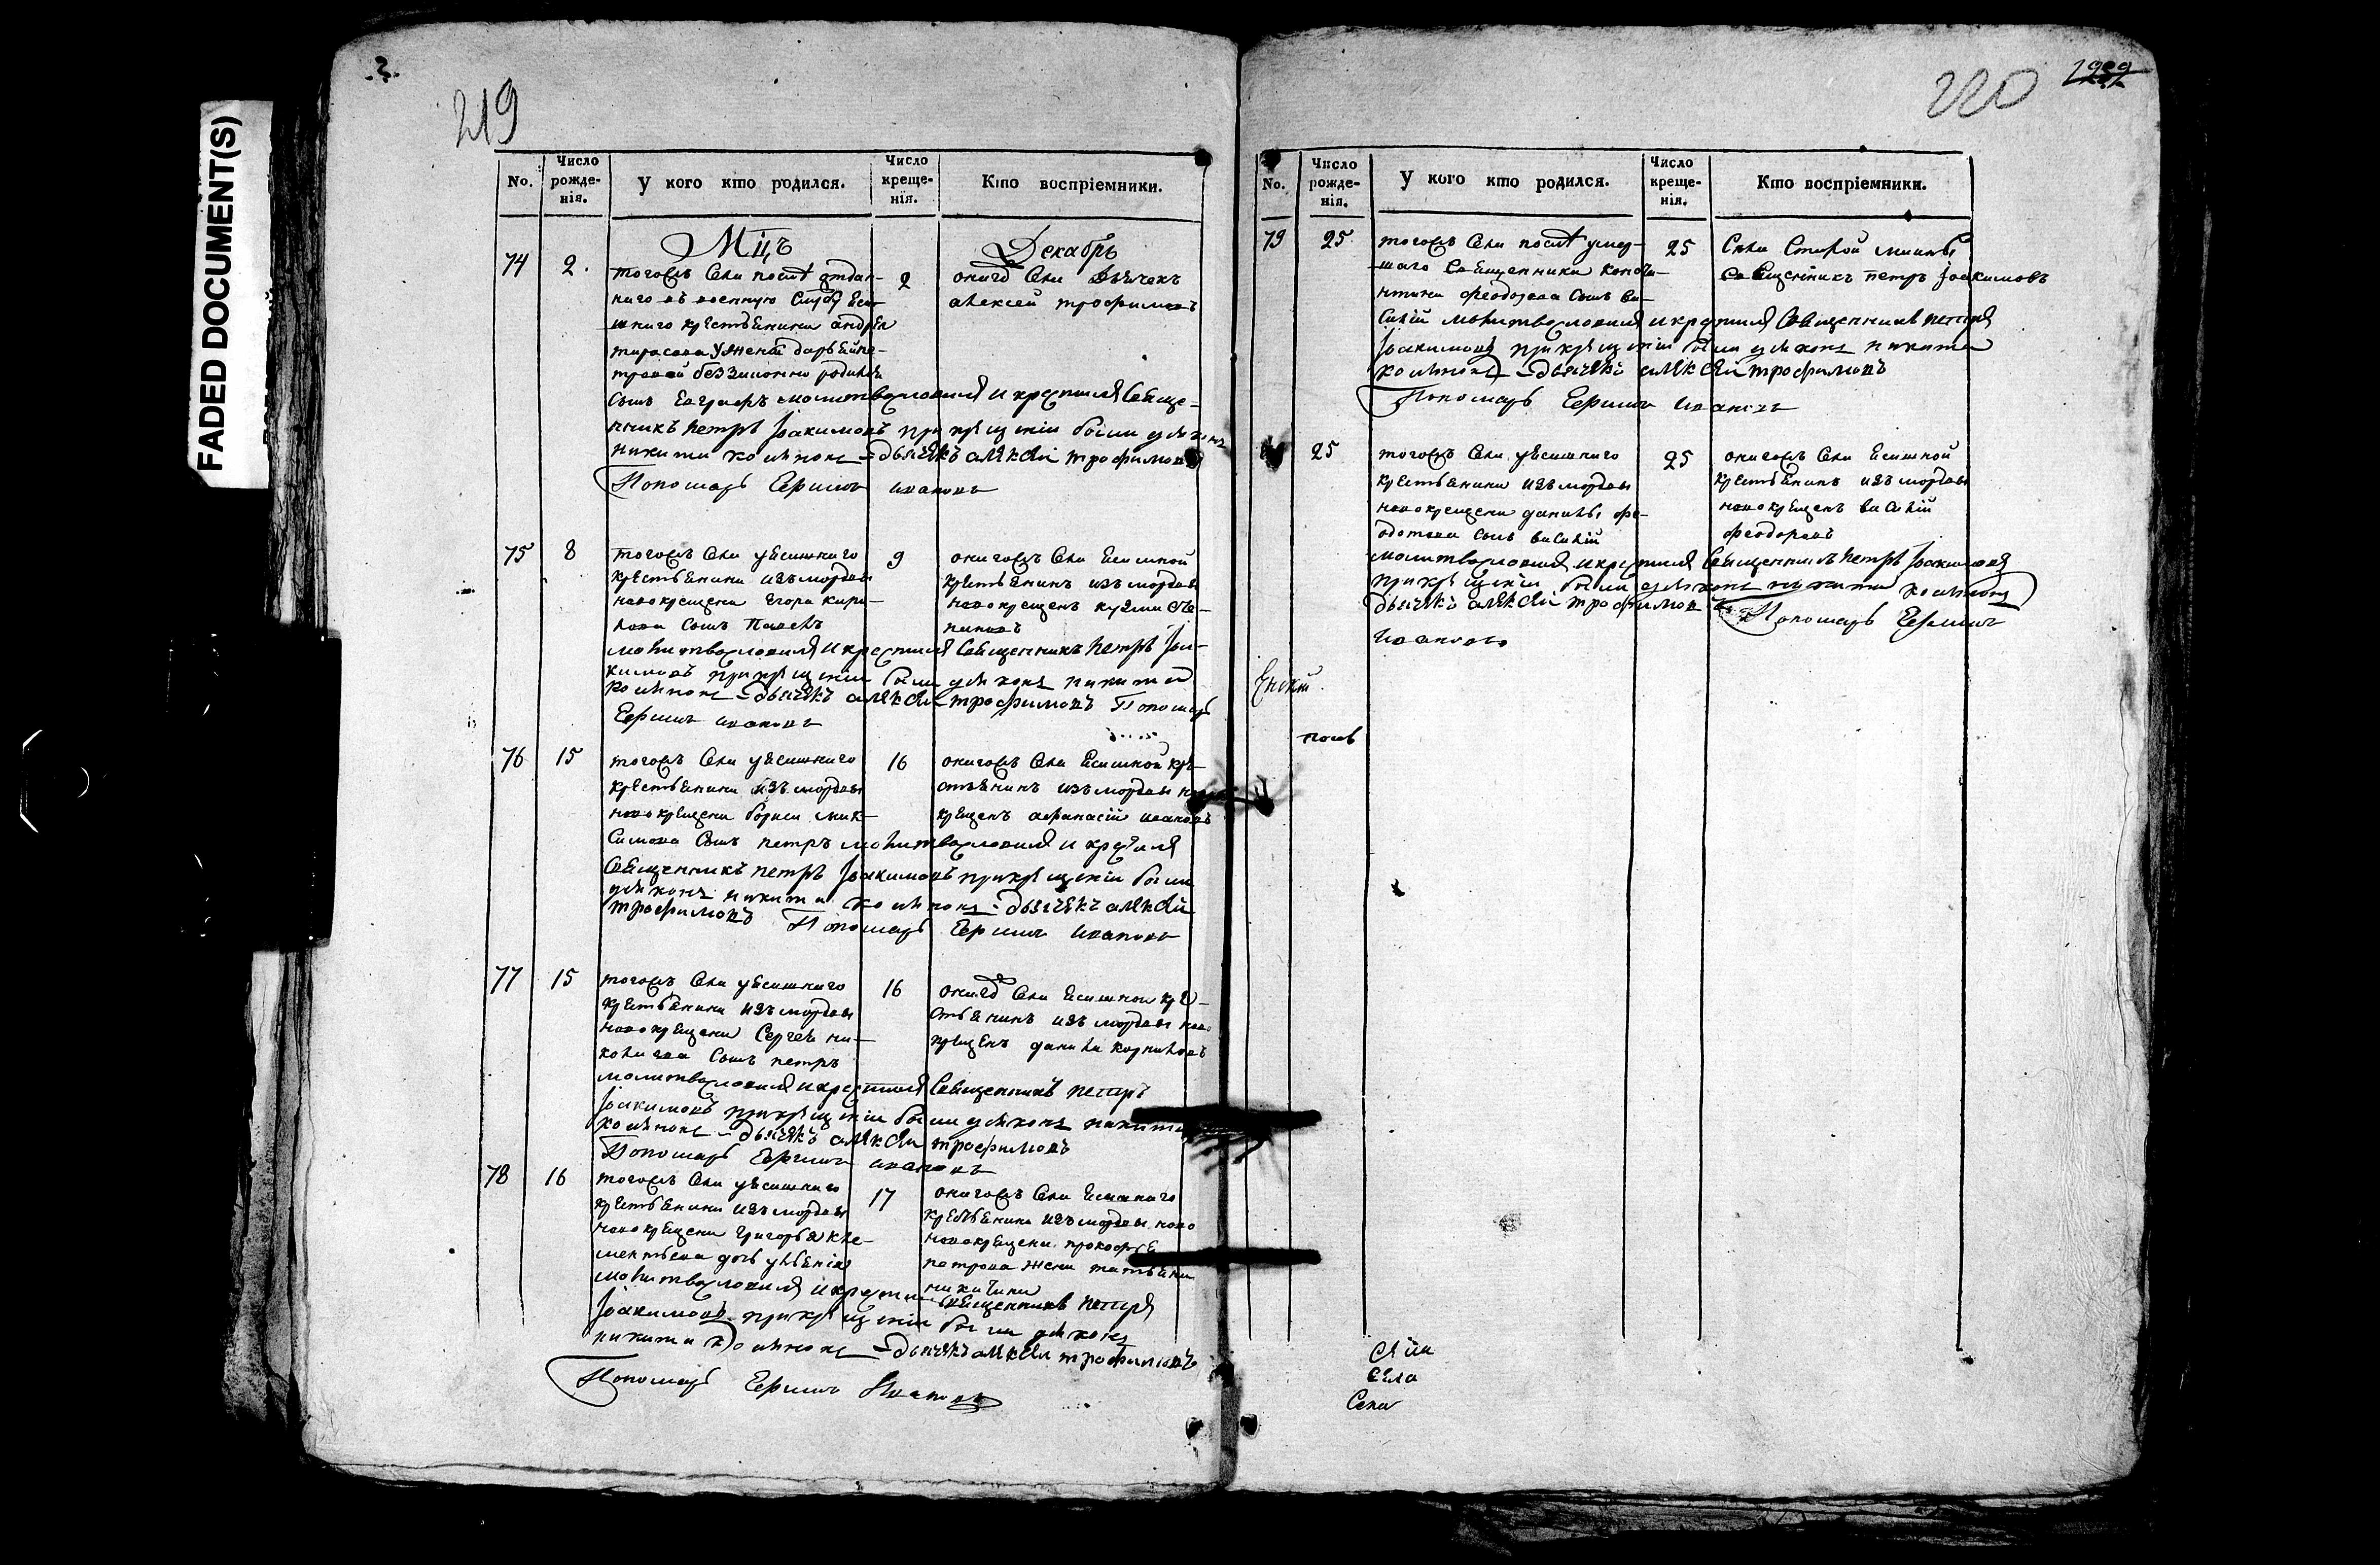 FADED DOCUMENT(S)
219
No.
Число рожде-нія.
У кого кто родился.
Число креще-нія.
Кто воспріемники.
Мцъ Декабрь
74 2.
тогожъ Села после отдан-
наго въ военную Службу Ясаш-
наго крестьянина андрея
тарасова У жены дарьи пе-
тровой беззаконно родился
сынъ Евграфъ молитвословилъ и крестилъ Свяще-
нникъ петръ Іоакимовъ при крещеніи были діяконъ
никита
дьячекъ алексей трофимовъ
Пономарь Ефимъ ивановъ
2
онаго Села Дьячекъ
алексей трофимовъ
75 8
тогожъ Села у ясашнаго
крестьянина изъ мордвы
новокрещена Егора кири-
лова сынъ Павелъ
молитвословилъ и крестилъ Священникъ петръ Іоа-
кимовъ при крещеніи были діяконъ никита
дьячекъ алексей трофимовъ Пономарь
Ефимъ ивановъ
9
онагожъ Села Ясашной
крестьянинъ изъ мордвы
новокрещенъ кузма сте-
пановъ
76 15
тогожъ Села у ясашнаго
крестьянина изъ мордвы
новокрещена бориса мак-
симова Сынъ петръ молитвословилъ и крестилъ
Священникъ петръ Іоакимовъ при крещеніи были
діяконъ никита дьячекъ алексей
трофимовъ Пономарь Ефимъ Ивановъ
16
онагожъ Села Ясашной кре-
стьянинъ изъ мордвы ново
крещенъ афанасій ивановъ
77 15
тогожъ Села у ясашнаго
крестьянина изъ мордвы
новокрещена Сергея ни-
колаева Сынъ петръ
молитвословилъ и крестилъ Священникъ петръ
Іоакимовъ при крещеніи были діяконъ никита
дьячекъ алексей трофимовъ
Пономарь Ефимъ ивановъ
16
онаго Села Ясашной кре-
стьянинъ изъ мордвы ново
крещенъ данила корниловъ
78 16
тогожъ Села у ясашнаго
крестьянина изъ мордвы
новокрещена григорья кле-
ментьева дочь
молитвословилъ и крестилъ Священникъ петръ
Іоакимовъ при крещеніи были діяконъ
никита дьячекъ алексей трофимовъ
Пономарь Ефимъ Ивановъ
17
онагожъ Села Ясашнаго
крестьянина изъ мордвы ново
новокрещена прокофья
петрова жена татьяна
никитина
220
No.
Число рожде-нія.
У кого кто родился.
Число креще-нія.
Кто воспріемники.
79 25
тогожъ Села после умер-
шаго Священника конста-
нтина феодорова Сынъ ва-
силій молитвословилъ и крестилъ Священникъ петръ
Іоакимовъ при крещеніи были діяконъ никита
дьячекъ алексей трофимовъ
Пономарь Ефимъ ивановъ
25
Села Старой
Священникъ петръ Іоакимовъ
25
тогожъ Села у ясашнаго
крестьянина изъ мордвы
новокрещена данилы фе-
дотова сынъ василій
молитвословилъ и крестилъ Священникъ петръ Іоакимовъ
при крещеніи были діяконъ никита
дьячекъ алексей трофимовъ Пономарь Ефимъ
Ивановъ
25
онагожъ Села Ясашной
крестьянинъ изъ мордвы
новокрещенъ василій
феодоровъ
села
Села